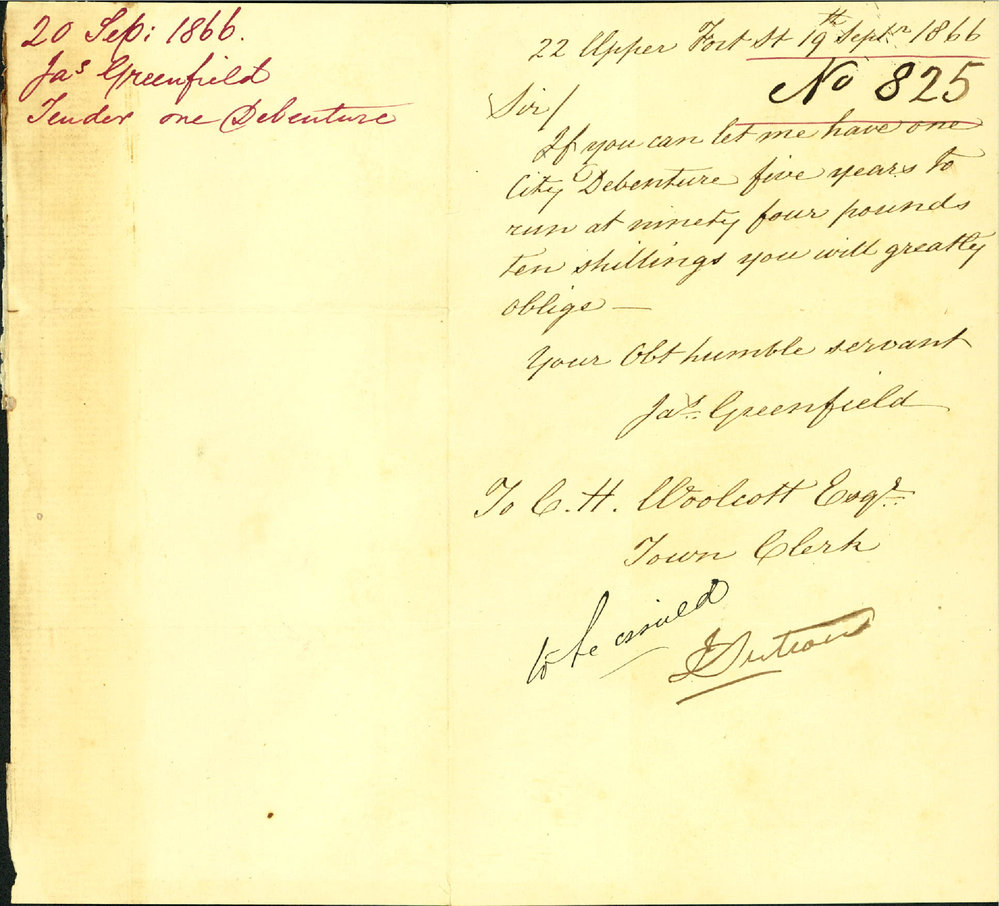 20 Sep: 1866.
Jas Greenfield
Tender one Debenture
22 Upper Fort St 19th Septr 1866
No 825
Sir/
If you can let me have one
City Debenture five years to
run at ninety four pounds
ten shillings you will greatly
oblige —
Your Obt humble servant
Jas. Greenfield
To C. H. Woolcott Esqr.
Town Clerk
to be issued